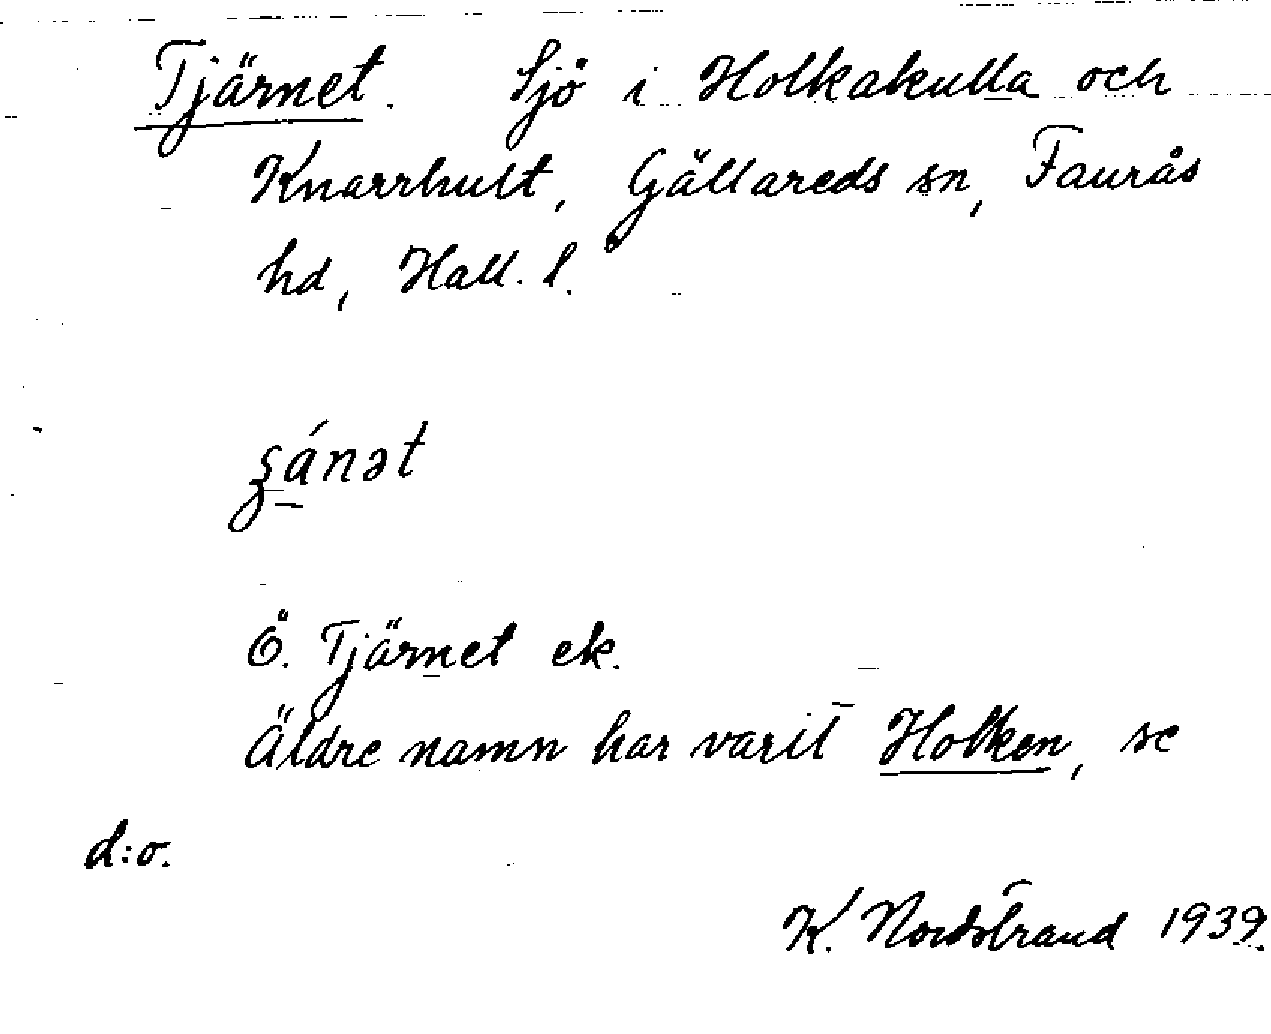 Tjärnet. Sjö i Holkakulla och
Knarrhult, Gällareds sn, Faurås
hd, Hall. l.
Ö. Tjärnet ek.
Äldre namn har varit Holken, se
d:o.
K. Nordstrand 1939.